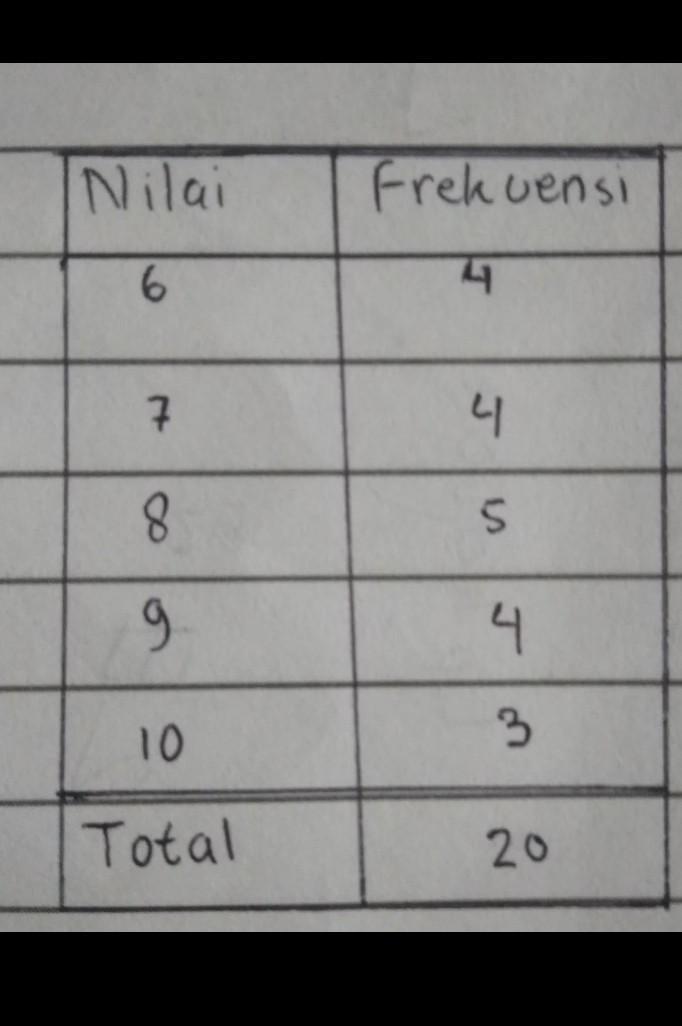 Nilai Frekuensi
6 4
7 4
8 5
9 4
10 3
Total 20